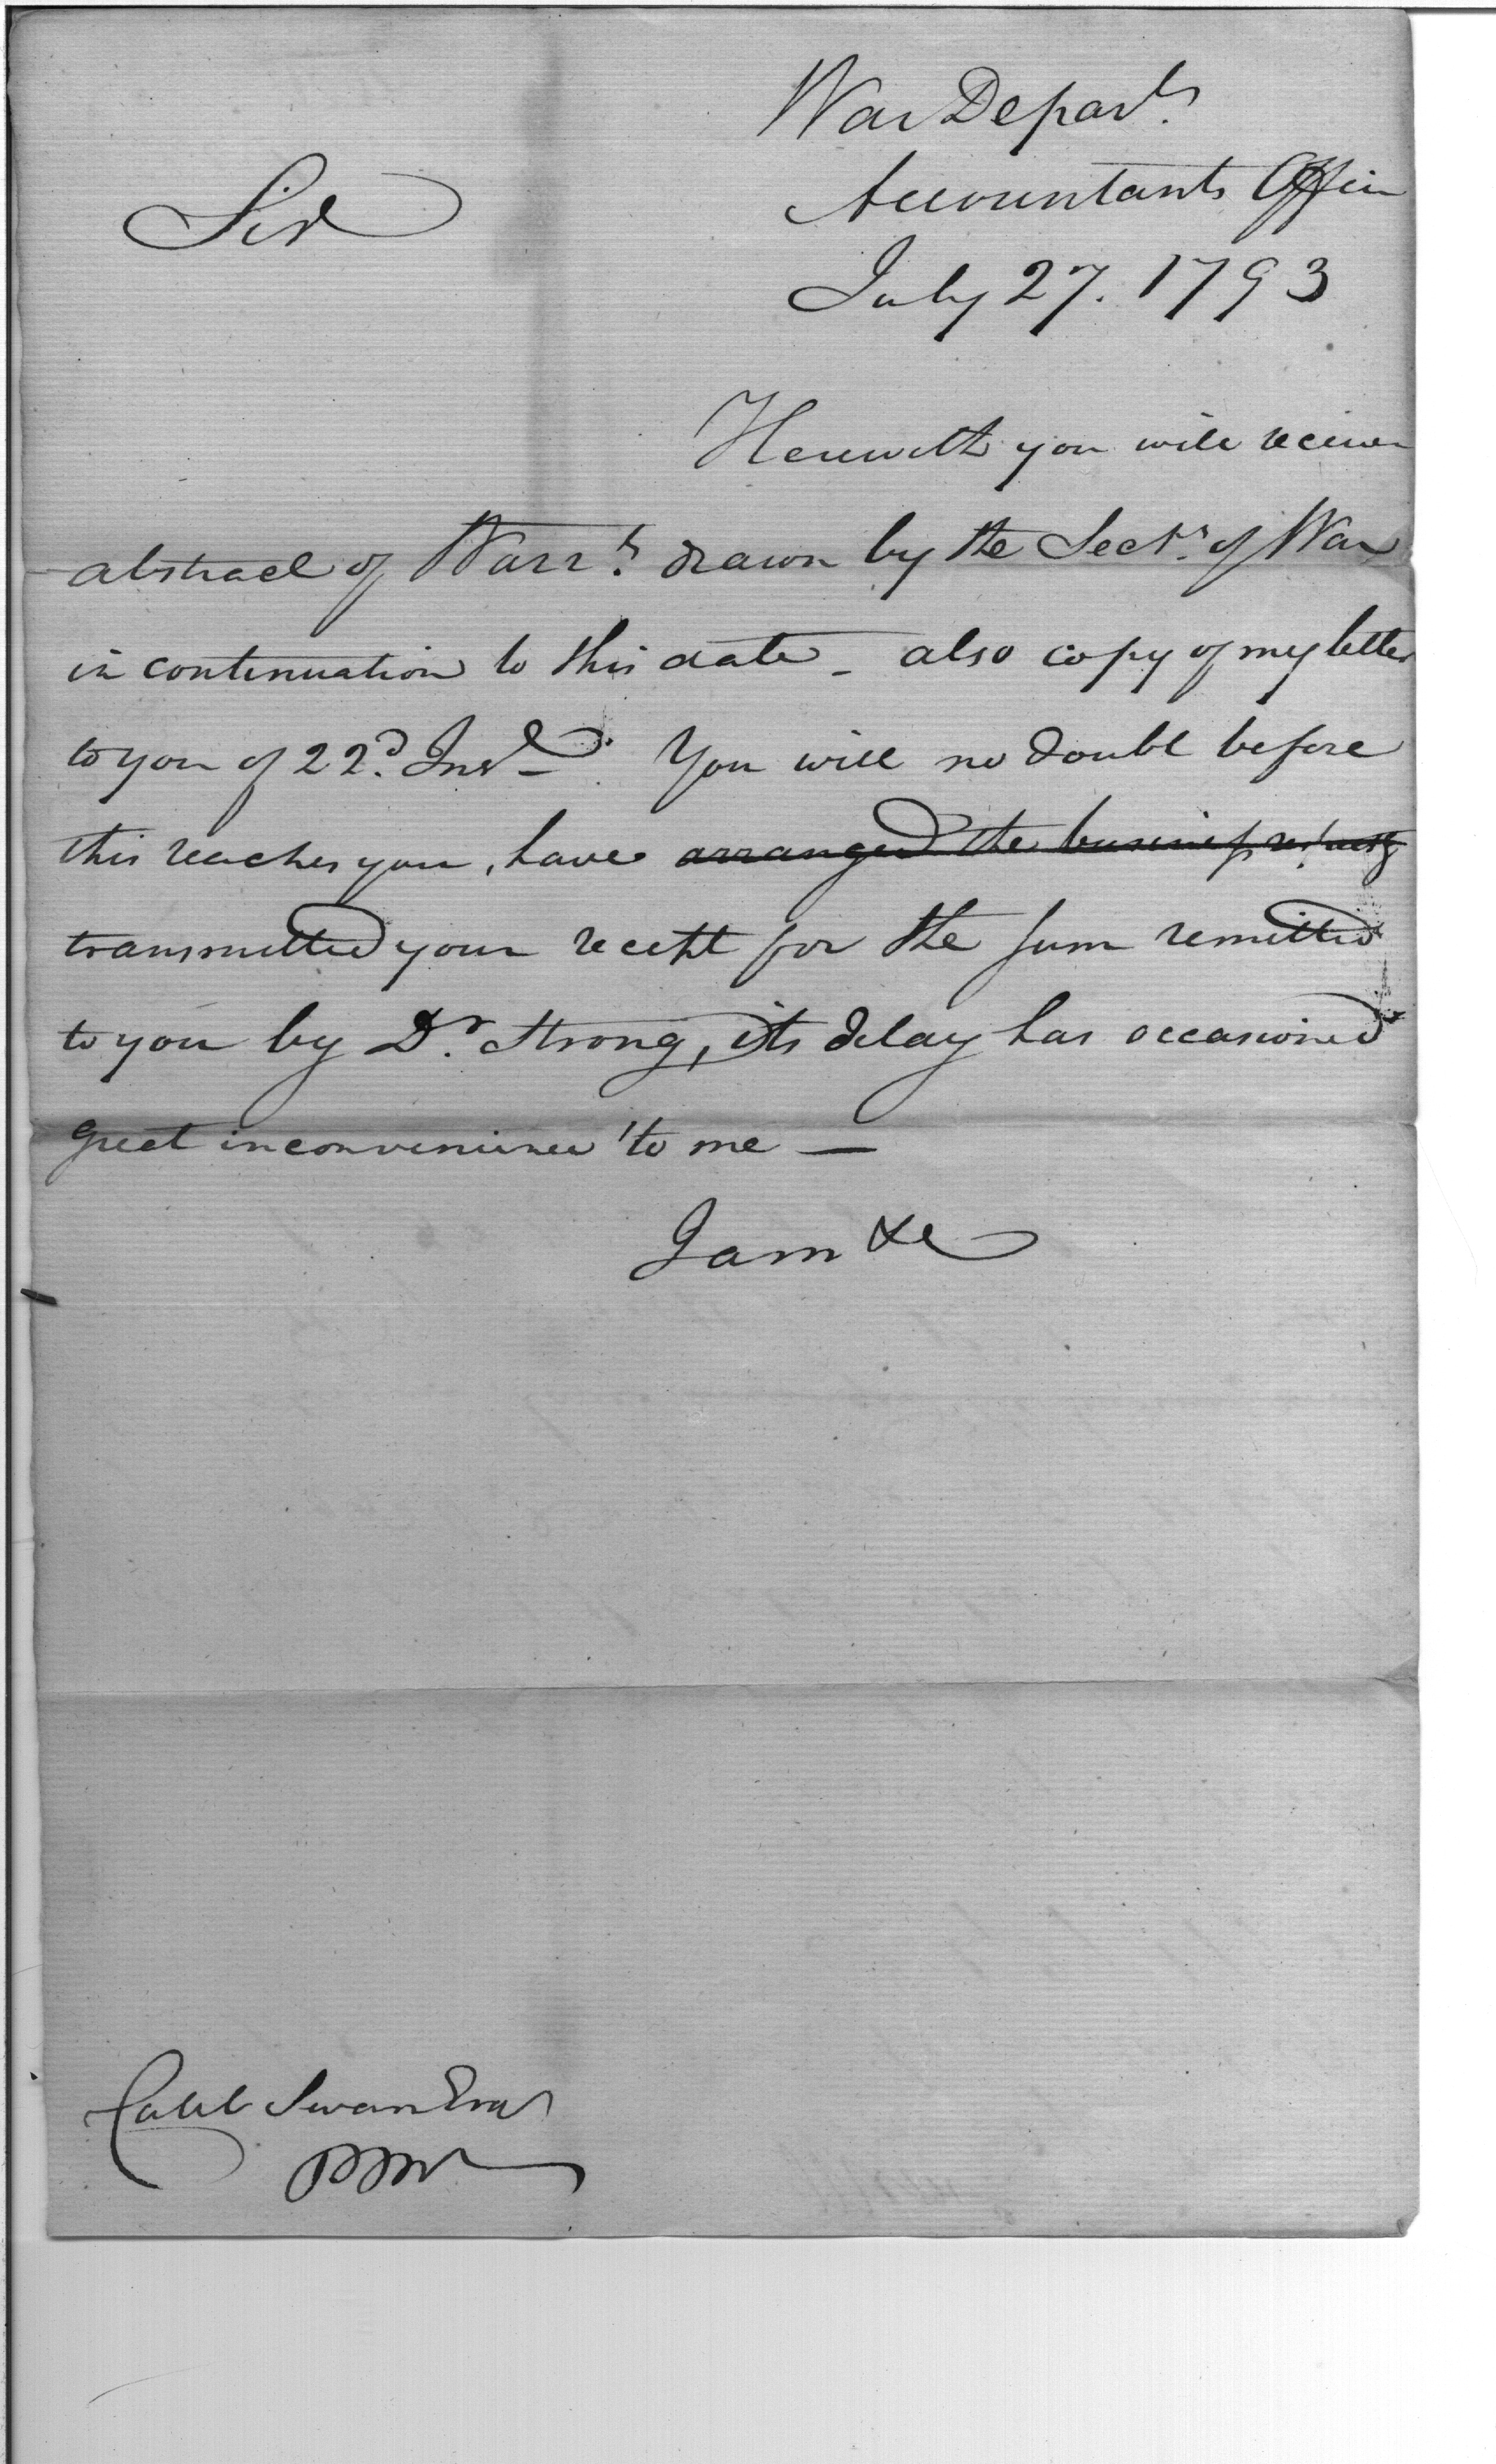 War Depart.
Accountants Office
Sir
July 27. 1793
Herewith you will receive
abstract of Warrts. drawn by the Secty. of War
in continuation to this date - also copy of my letter
to you of 22d. Inst - You will no doubt before
this reaches you, have arranged the business
transmitted your receipt for the sum remitted
to you by Dr. Strong, its delay has occasioned
great inconvenience to me —
I am &c
Caleb Swan Esqr
PMr